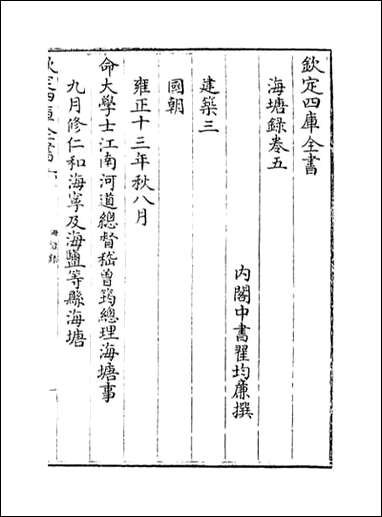 欽定四庫全書
海塘錄卷五
內閣中書翟均廉撰
建築三
國朝
雍正十三年秋八月
命大學士江南河道總督嵇曾筠總理海塘事
九月修仁和海寧及海鹽等縣海塘
欽定四庫全書
海塘錄
一